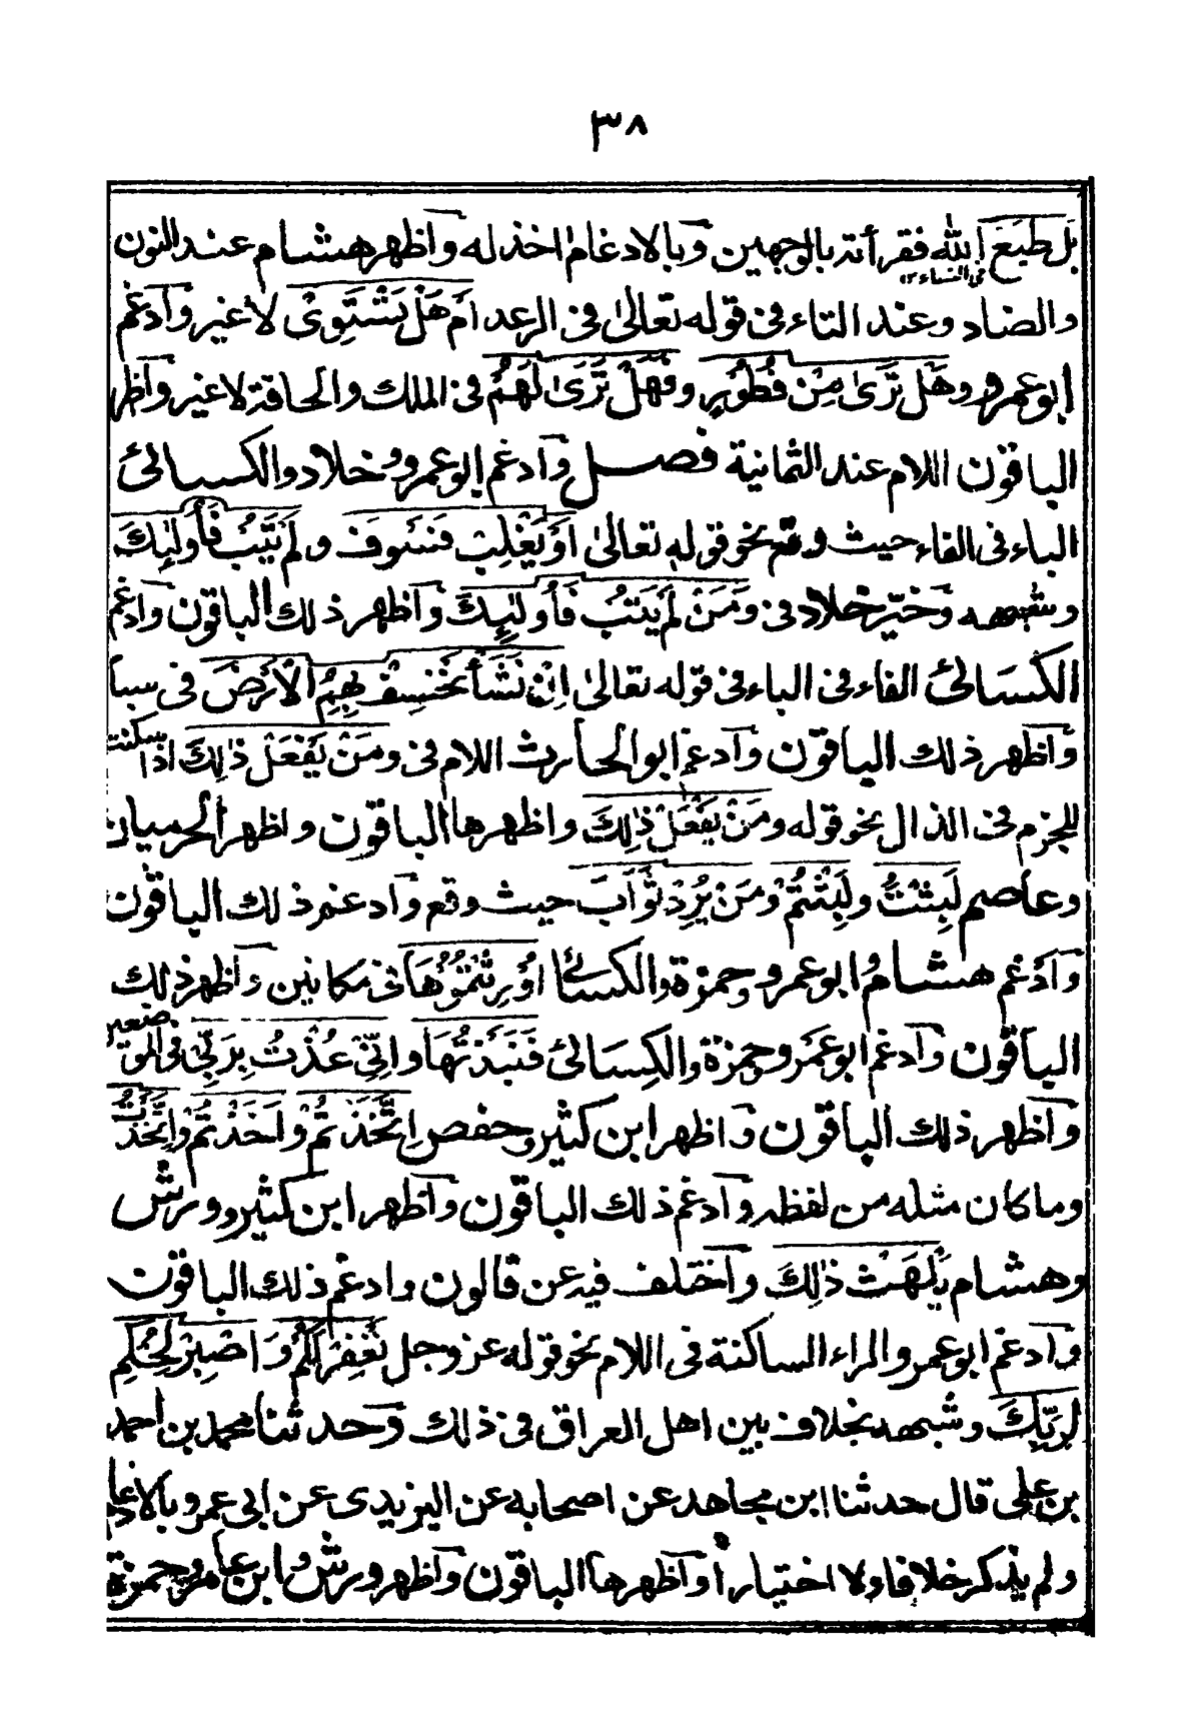 ٣٨
بَل طَبَعَ الله فقرأته بالوجهين وبالادغام اخذ له واظهر هشام عند النون
في النساء ١٢
والضاد وعند التاء فى قوله تعالىٰ فى الرعد اَمْ هَلْ تَسْتَوِىْ لاغير وادغم
ابو عمرو وهَل تَرَىٰ مِنْ فُطُوْرٍ وفَهَلْ تَرَىٰ لَهُمْ فى الملك والحاقة لاغير واظهر
الباقون اللام عند الثمانية فصل وادغم ابو عمرو وخلاد والكسائى
الباء فى الفاء حيث وقع نحو قوله تعالىٰ اَوْ يَغْلِبْ فَسَوفَ و لَمْ يَتُبْ فَأُولٰئِكَ
وشبهه وخيّر خلاد فى وَمَنْ لَمْ يَتُبْ فَأُولٰئِكَ واظهر ذلك الباقون وادغم
الكسَائى الفاء فى الباء فى قوله تعالىٰ اِنْ نَشَأْ نَخْسِفْ بِهِمُ الْاَرْضَ فى سبا
واظهر ذلك الباقون وادغم ابو الحارث اللام فى ومَنْ يَفْعَلْ ذٰلِكَ اذا سكنت
للجزم فى الذال نحو قوله ومَنْ يَفْعَلْ ذٰلِكَ واظهرها الباقون واظهر الحرميان
وعاصم لَبِثْتُ ولَبِثْتُمْ ومَنْ يُرِدْ ثَوَابَ حيث وقع وادغم ذلك الباقون
وادغم هشام وابو عمرو وحمزة والكسائى اُوْرِثْتُمُوْهَا فى مكانين واظهر ذلك
الباقون وادغم ابو عمَرو وحمزة والكِسَائى فَنَبَذْتُهَا واِنِّىْ عُذْتُ بِرَبِّىْ فى الموضعين
واظهر ذلك الباقون واظهر ابن كثير وحفص اِتَّخَذْتُمْ وَاَخَذْتُمْ وَاِتَّخَذْتُ
وما كان مثله من لفظه وادغم ذلك الباقون واظهر ابن كثير وورش
وهشام يَلْهَثْ ذٰلِكَ واختلف فيه عن قالون وادغم ذلك الباقون
وادغم ابو عمرو الراء الساكنة فى اللام نحو قوله عزوجل نَغْفِرْلَكُمْ وَاصْبِرْ لِحُكْمِ
لرَبِّكَ وشبهه بخلاف بين اهل العراق فى ذلك وحدثنا محمد بن احمد
بن على قال حدثنا ابن مجاهد عن اصحابه عن اليزيدى عن ابى عمرو بالادغام
ولم يذكر خلافا ولا اختيارا واظهرها الباقون واظهر ورش وابن عامر وحمزة